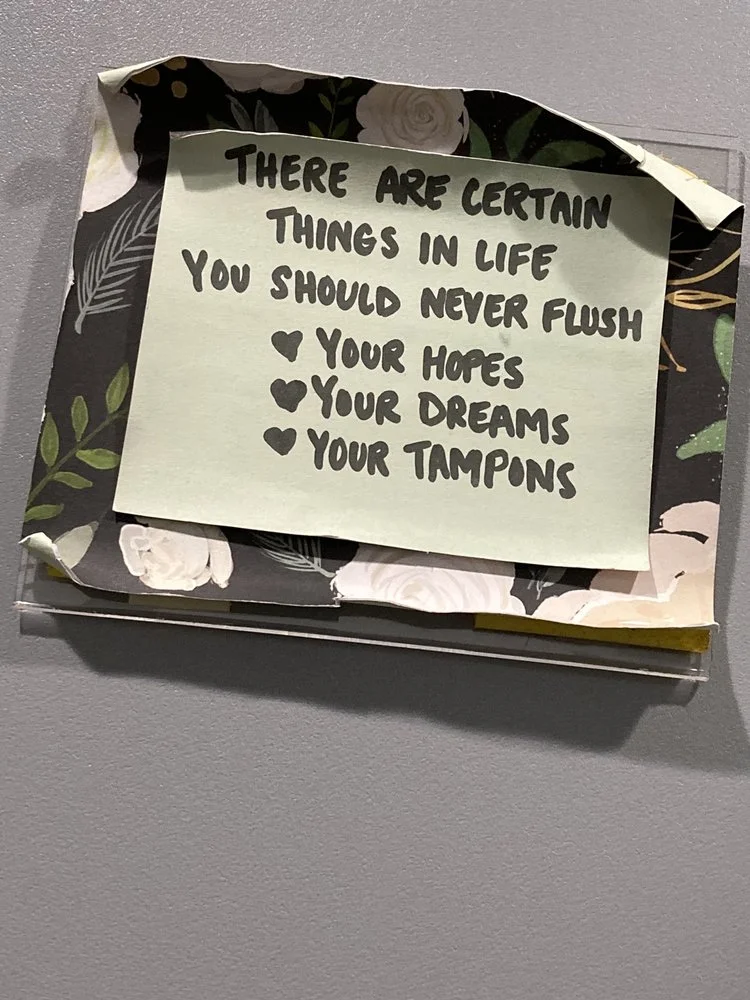 THERE ARE CERTAIN
THINGS IN LIFE
YOU SHOULD NEVER FLUSH
♥ YOUR HOPES
♥ YOUR DREAMS
♥ YOUR TAMPONS